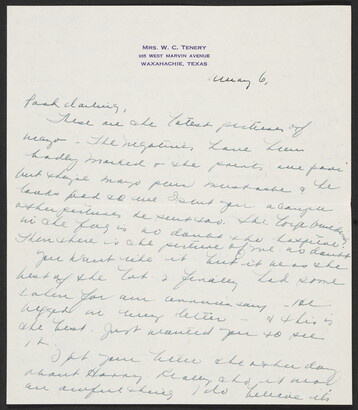 MRS. W. C. TENERY
WEST MARVIN AVENUE
WAXAHACHIE, TEXAS
May 6,
Pooh darling,
These are the latest pictures of
Mayo - The negatives have been
badly marked & the prints are poor
but
looks good so we I sent you a couple
other pictures he sent too. The
in the is no doubt the hospital.
Then there is the picture of me no doubt
You wont like it but it was the
best of the lot & I finally had some
taken for our anniversary -
in my letter - & this is
the best. Just wanted you to see
it.
I got your letter the other day
about Harry Really and it was
an awful thing I do believe it's